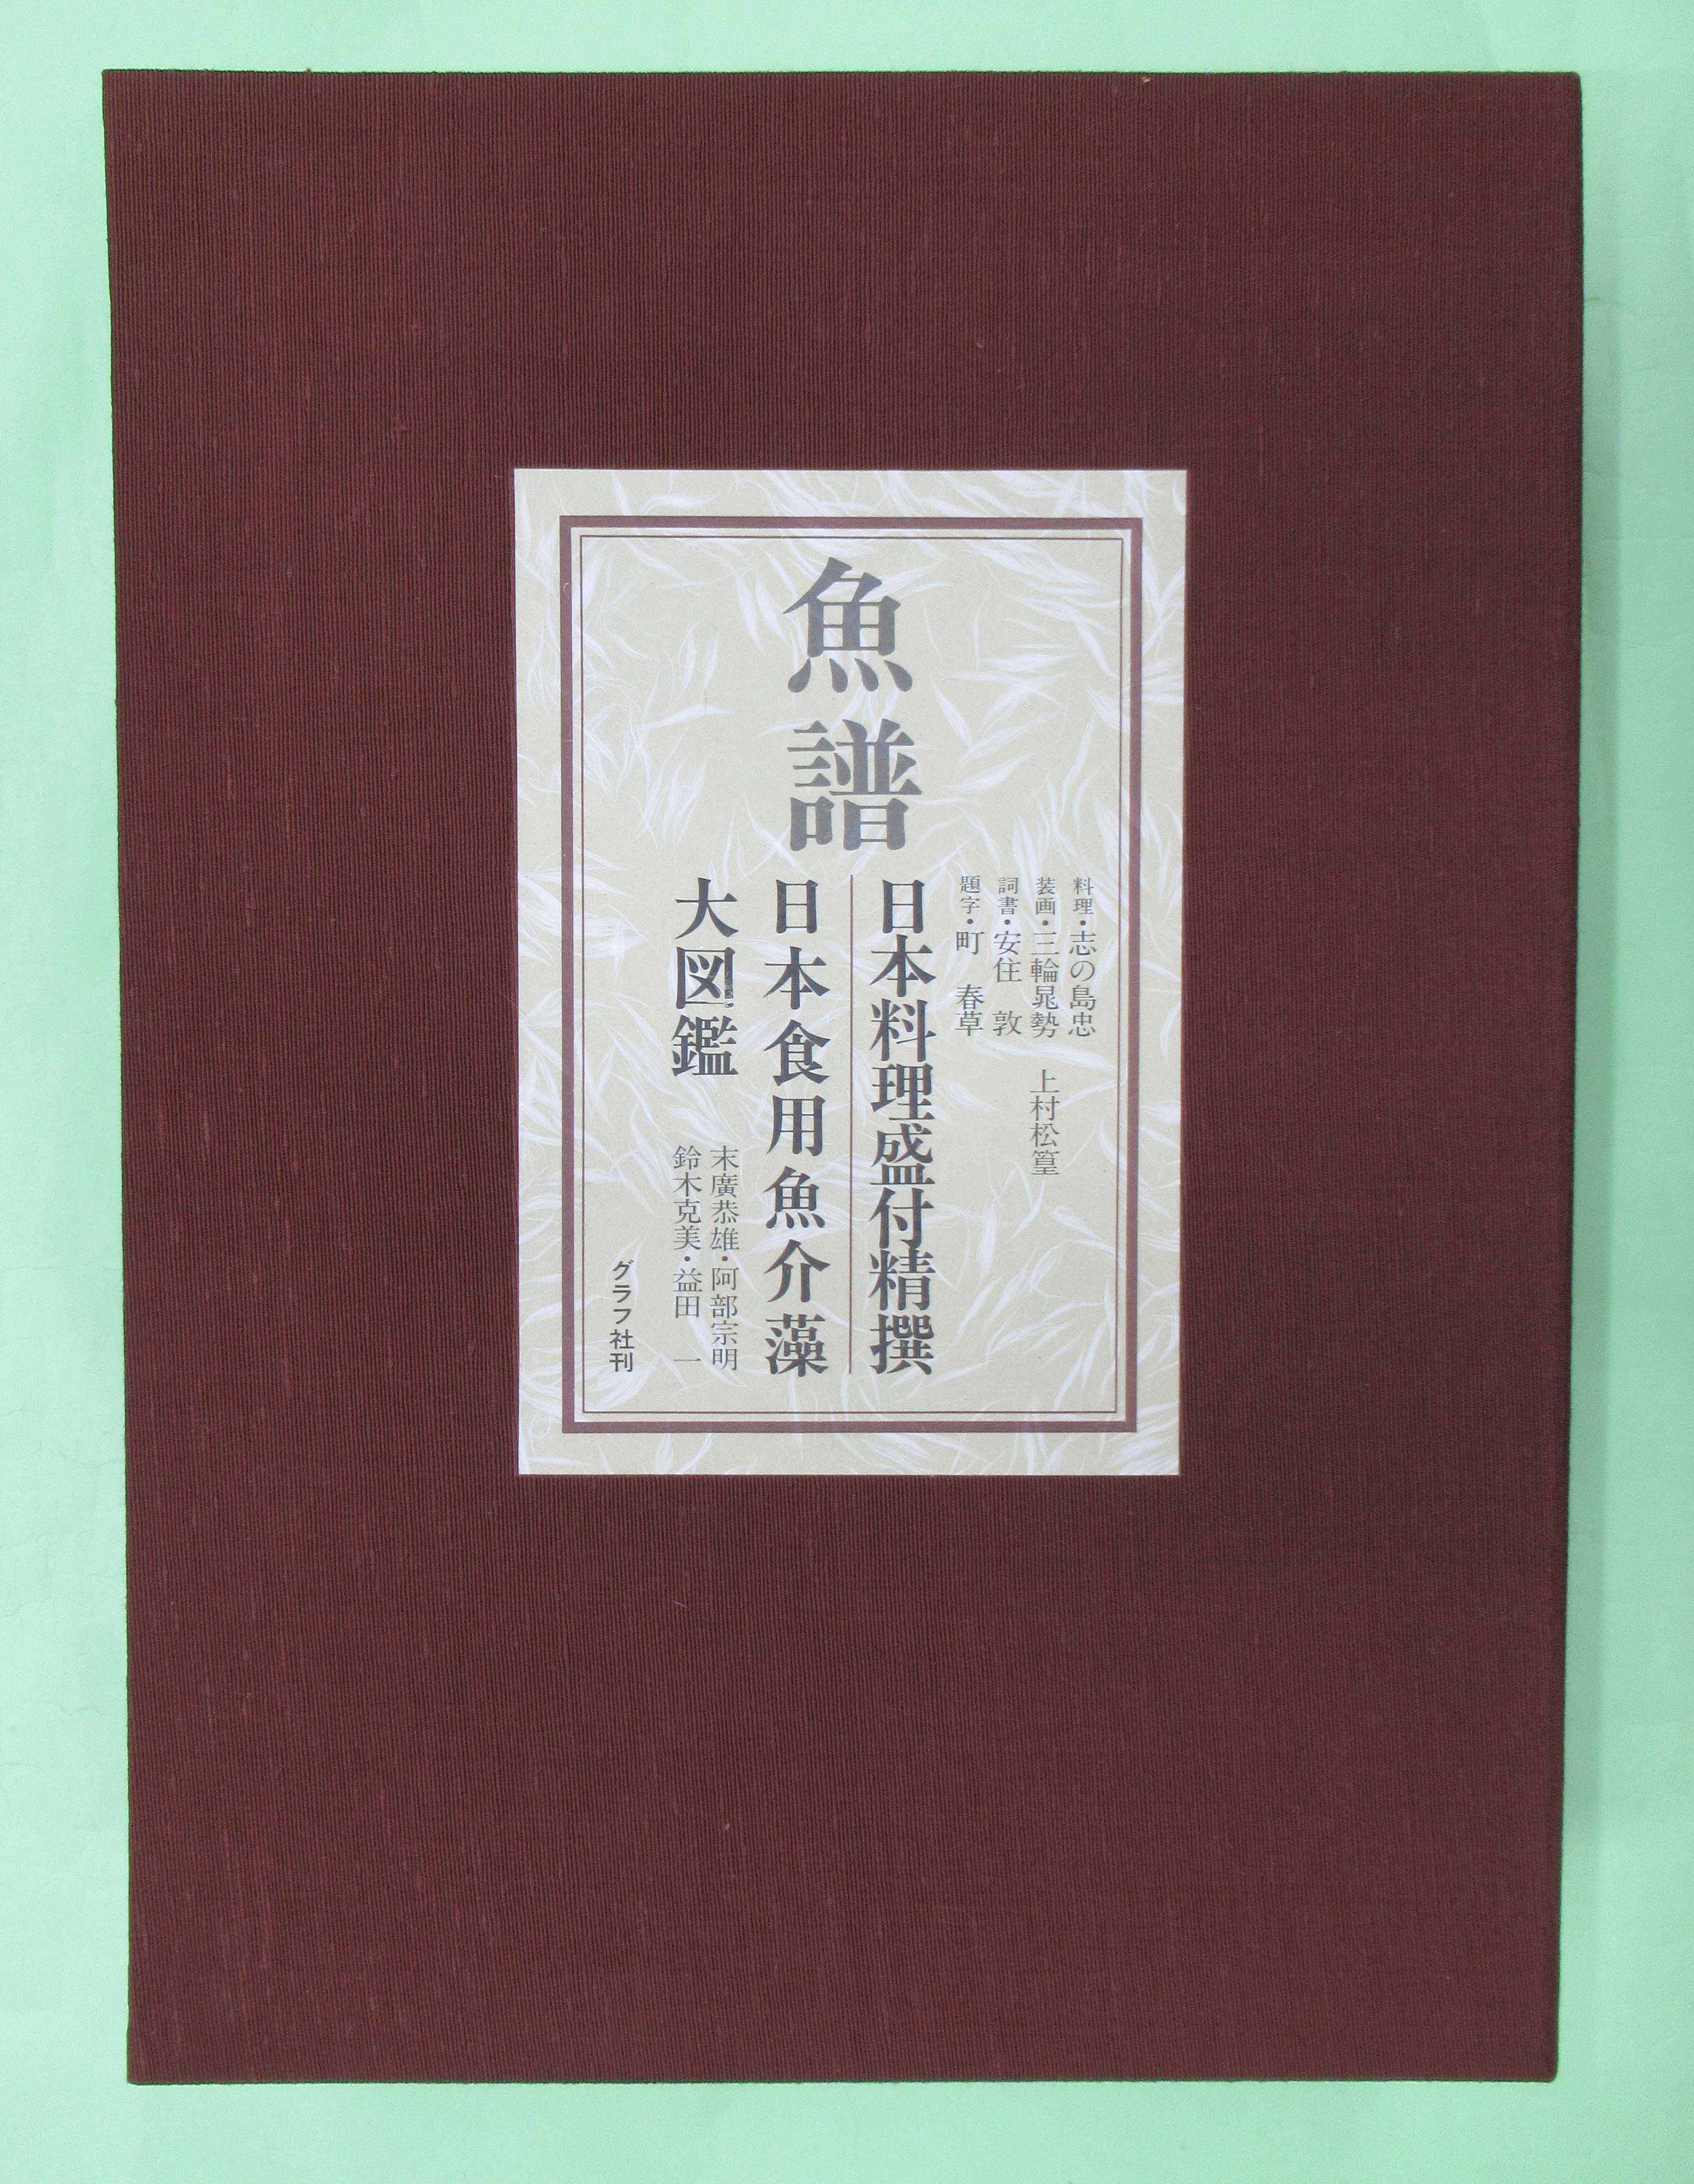 魚譜
料理・志の島忠
装画・三輪晁勢　上村松篁
詞書・安住　敦
題字・町　春草
日本料理盛付精撰
日本食用魚介藻
大図鑑
末廣恭雄・阿部宗明
鈴木克美・益田　一
グラフ社刊